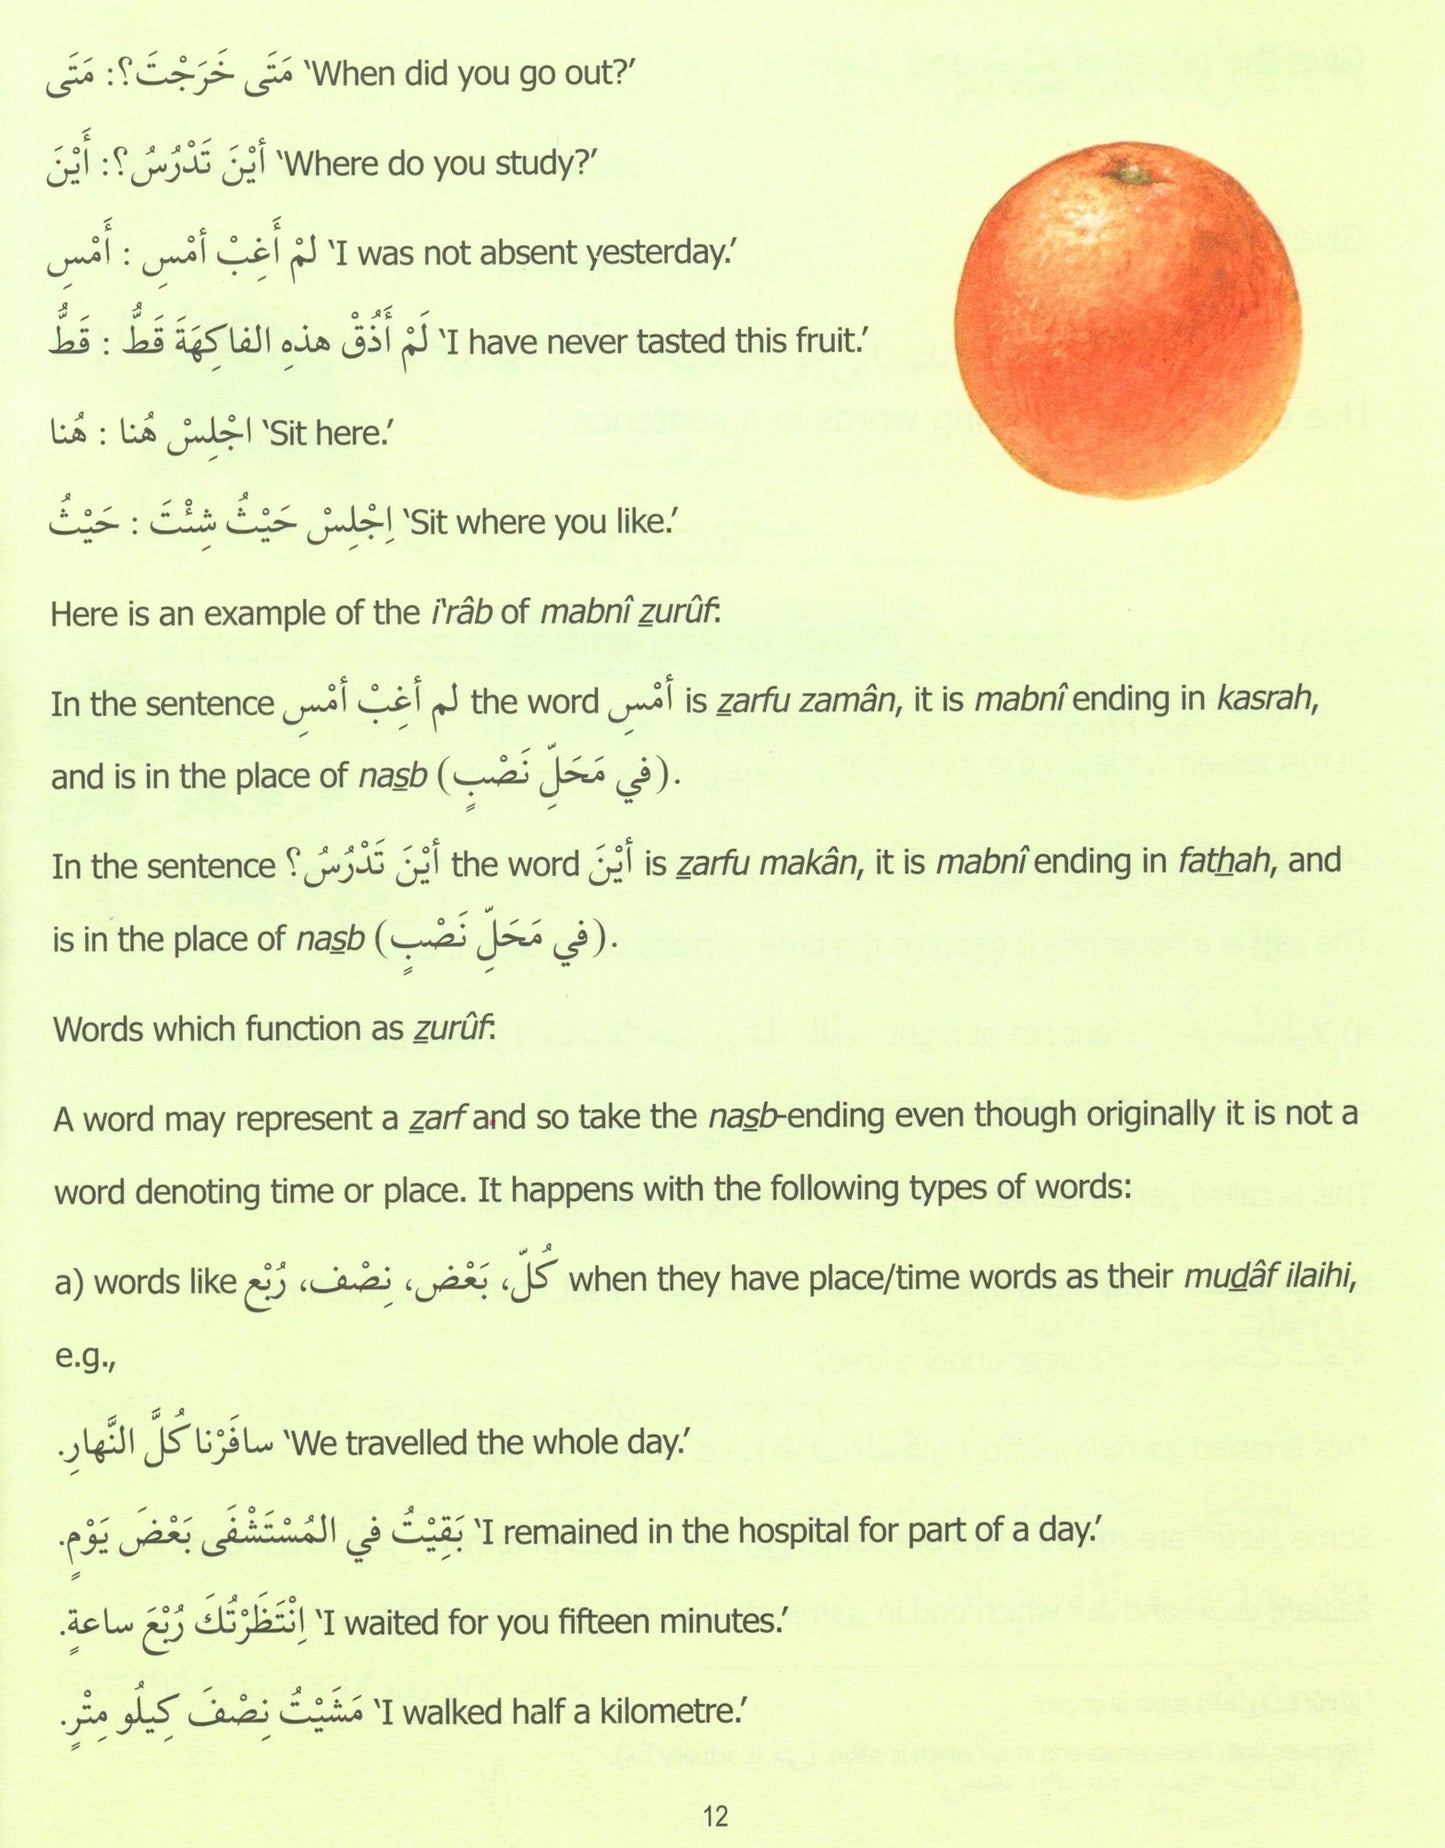 مَتَى خَرَجْتَ؟: مَتَى ‘When did you go out?’
أيْنَ تَدْرُسُ؟: أَيْنَ ‘Where do you study?’
لَمْ أَغِبْ أمْسِ : أَمْسِ ‘I was not absent yesterday.’
لَمْ أَذُقْ هذهِ الفاكِهَةَ قَطُّ : قَطُّ ‘I have never tasted this fruit.’
اجْلِسْ هُنا : هُنا ‘Sit here.’
اِجْلِسْ حَيْثُ شِئْتَ : حَيْثُ ‘Sit where you like.’
Here is an example of the i‘râb of mabnî zurûf:
In the sentence لم أغِبْ أمْسِ the word أمْسِ is zarfu zamân, it is mabnî ending in kasrah,
and is in the place of nasb (في مَحَلِّ نَصْبٍ).
In the sentence أيْنَ تَدْرُسُ؟ the word أيْنَ is zarfu makân, it is mabnî ending in fathah, and
is in the place of nasb (في مَحَلِّ نَصْبٍ).
Words which function as zurûf:
A word may represent a zarf and so take the nasb-ending even though originally it is not a
word denoting time or place. It happens with the following types of words:
a) words like كُلّ، بَعْض، نِصْف، رُبْع when they have place/time words as their mudâf ilaihi,
e.g.,
سافَرْنا كُلَّ النَّهارِ. ‘We travelled the whole day.’
بَقِيْتُ في المُسْتَشْفَى بَعْضَ يَوْمٍ. ‘I remained in the hospital for part of a day.’
اِنْتَظَرْتُكَ رُبْعَ ساعةٍ. ‘I waited for you fifteen minutes.’
مَشَيْتُ نِصْفَ كِيلُو مِتْرٍ. ‘I walked half a kilometre.’
12